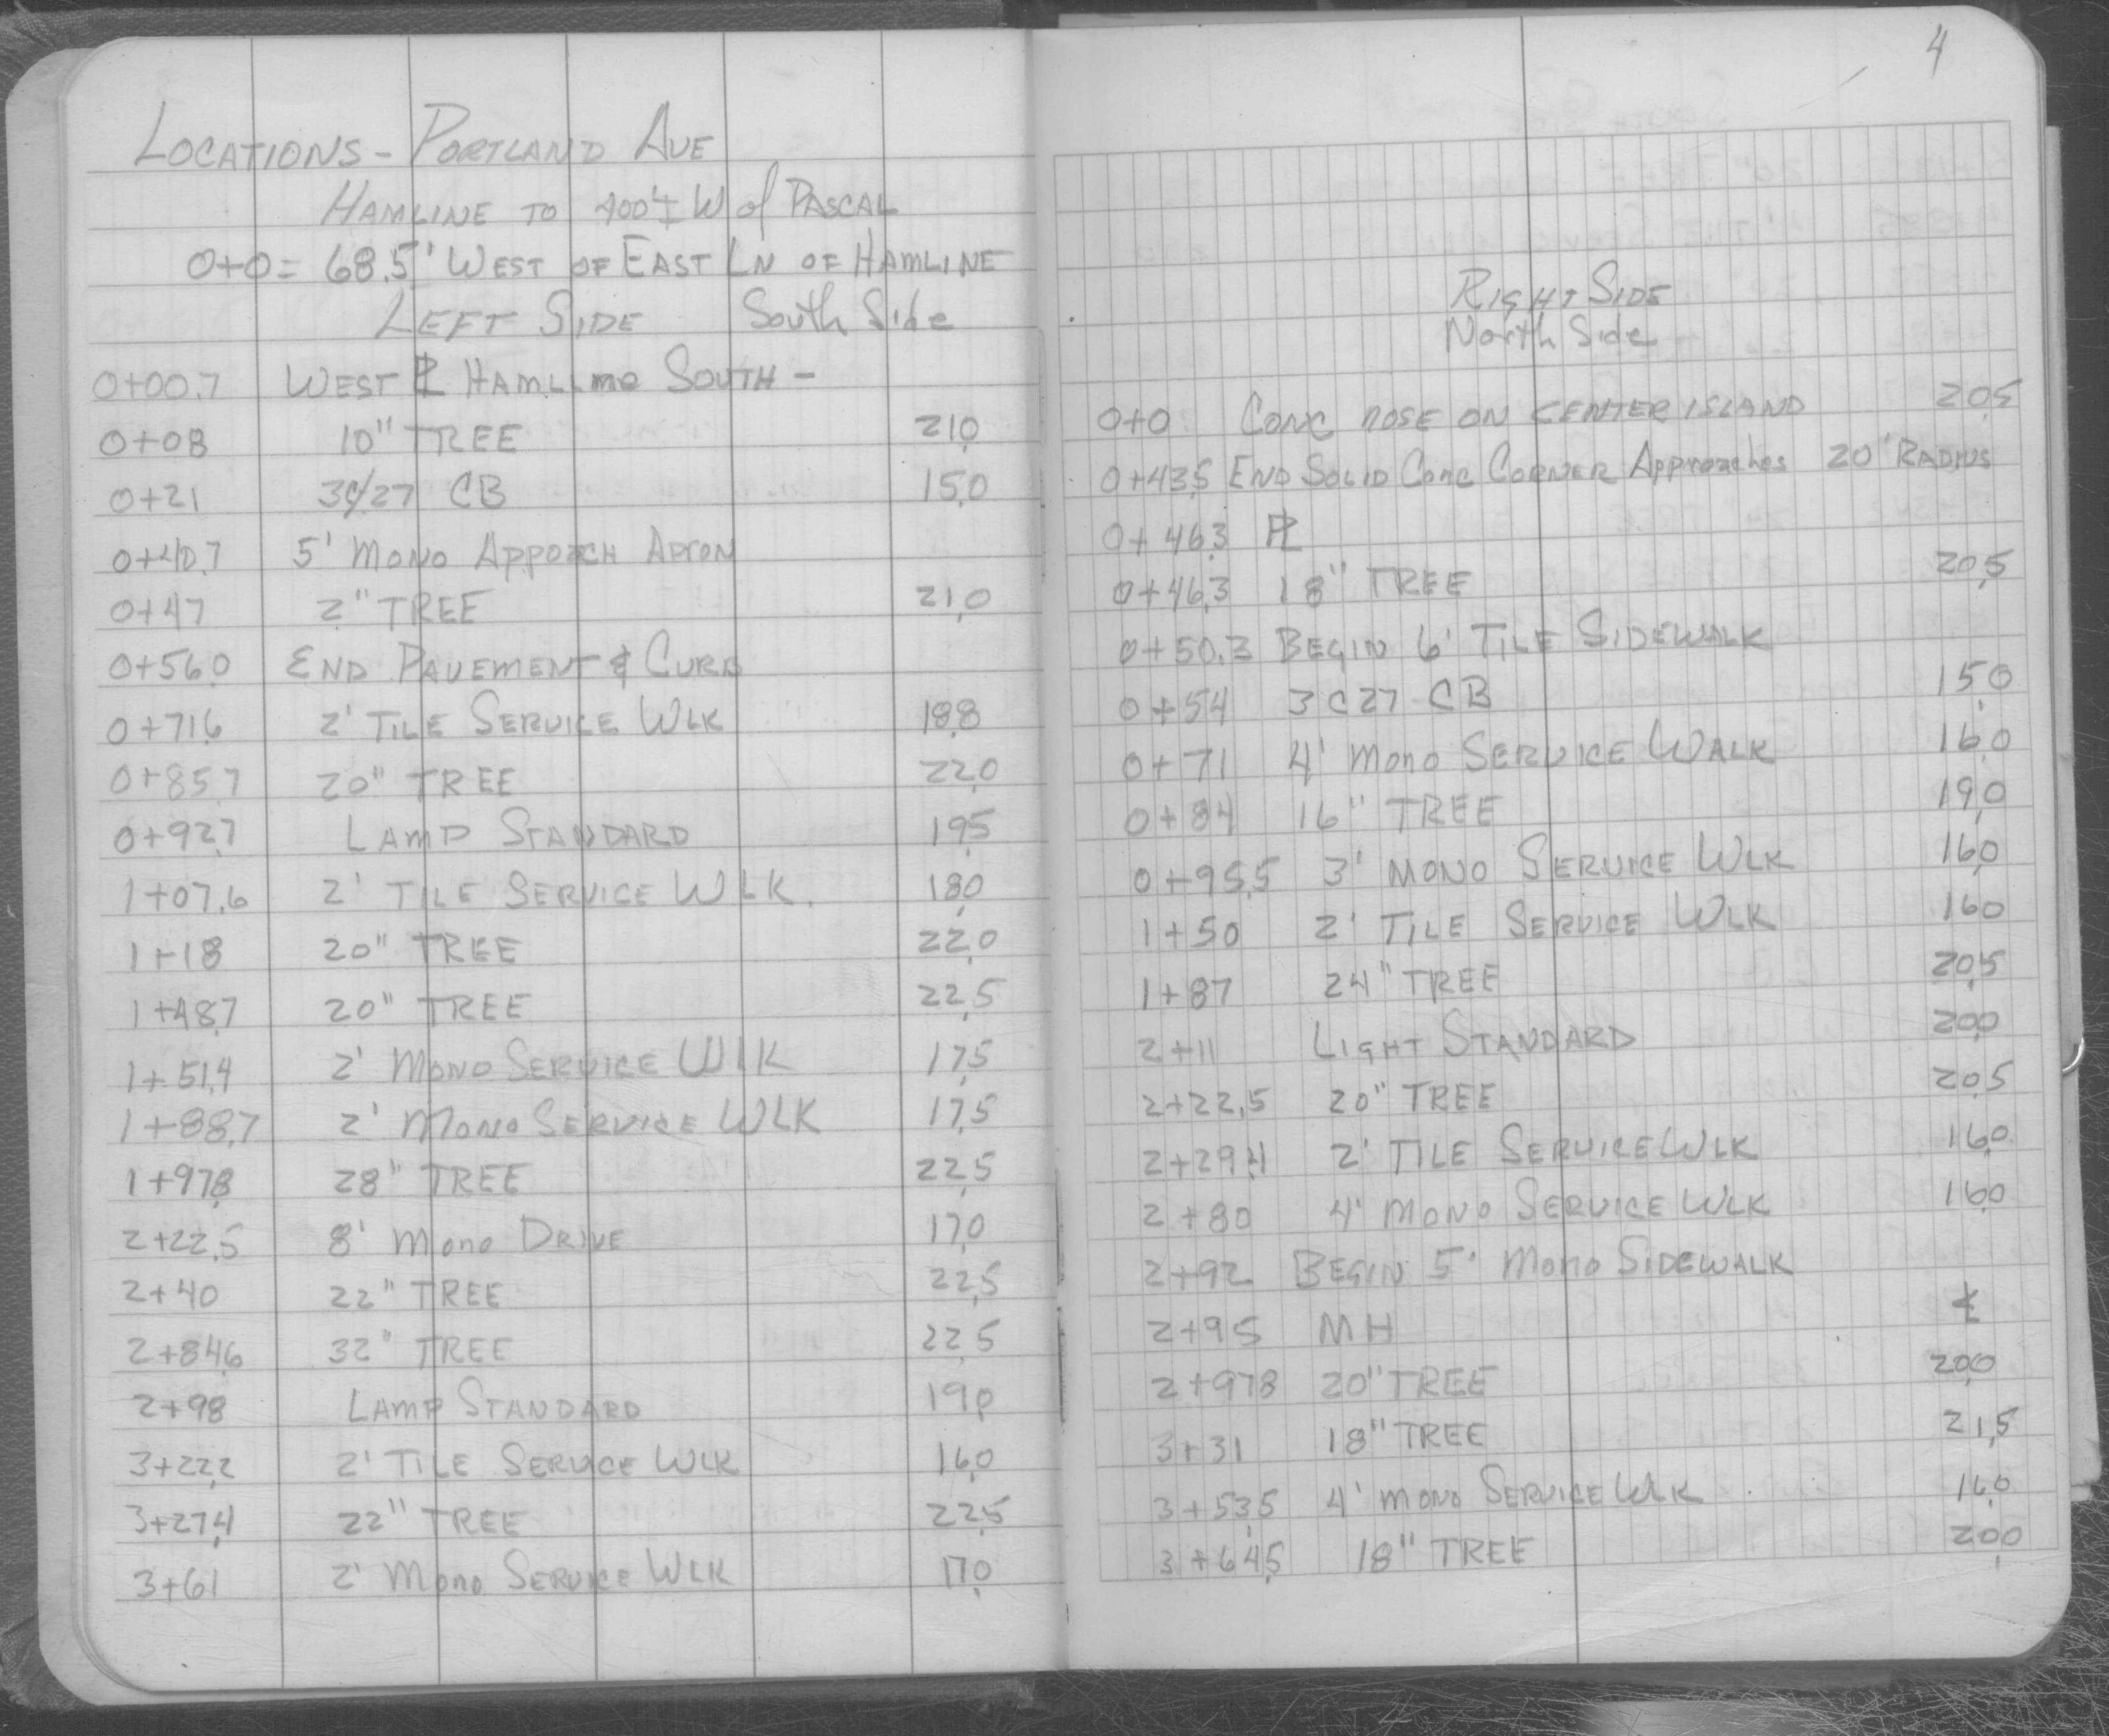 LOCATIONS - PORTLAND AVE
HAMLINE TO 400'± W of PASCAL
0+0 = 68.5' WEST OF EAST LN OF HAMLINE
LEFT SIDE South Side
0+00.7 WEST ℙL HAMLINE SOUTH -
0+08 10" TREE 21.0
0+21 3C/27 CB 15.0
0+40.7 5' MONO APPOACH APRON
0+47 2" TREE 21.0
0+56.0 END PAVEMENT & CURB
0+71.6 2' TILE SERVICE WLK 18.8
0+85.7 20" TREE 22.0
0+92.7 LAMP STANDARD 19.5
1+07.6 2' TILE SERVICE WLK. 18.0
1+18 20" TREE 22.0
1+48.7 20" TREE 22.5
1+51.4 2' MONO SERVICE WLK 17.5
1+88.7 2' MONO SERVICE WLK 17.5
1+97.8 28" TREE 22.5
2+22.5 8' MONO DRIVE 17.0
2+40 22" TREE 22.5
2+84.6 32" TREE 22.5
2+98 LAMP STANDARD 19.0
3+22.2 2' TILE SERVICE WLK 16.0
3+27.4 22" TREE 22.5
3+61 2' MONO SERVICE WLK 17.0
4
RIGHT SIDE
North Side
0+0 CONC NOSE ON CENTER ISLAND 20.5
0+43.5 END SOLID CONC CORNER Approaches 20' RADIUS
0+46.3 ℙL
0+46.3 18" TREE 20.5
0+50.3 BEGIN 6' TILE SIDEWALK
0+54 3C27 CB 15.0
0+71 4' MONO SERVICE WALK 16.0
0+84 16" TREE 19.0
0+95.5 3' MONO SERVICE WLK 16.0
1+50 2' TILE SERVICE WLK 16.0
1+87 24" TREE 20.5
2+11 LIGHT STANDARD 20.0
2+22.5 20" TREE 20.5
2+29.4 2' TILE SERVICE WLK 16.0
2+80 4' MONO SERVICE WLK 16.0
2+92 BEGIN 5' MONO SIDEWALK
2+95 MH ℄
2+97.8 20" TREE 20.0
3+31 18" TREE 21.5
3+53.5 4' MONO SERVICE WLK 16.0
3+64.5 18" TREE 20.0